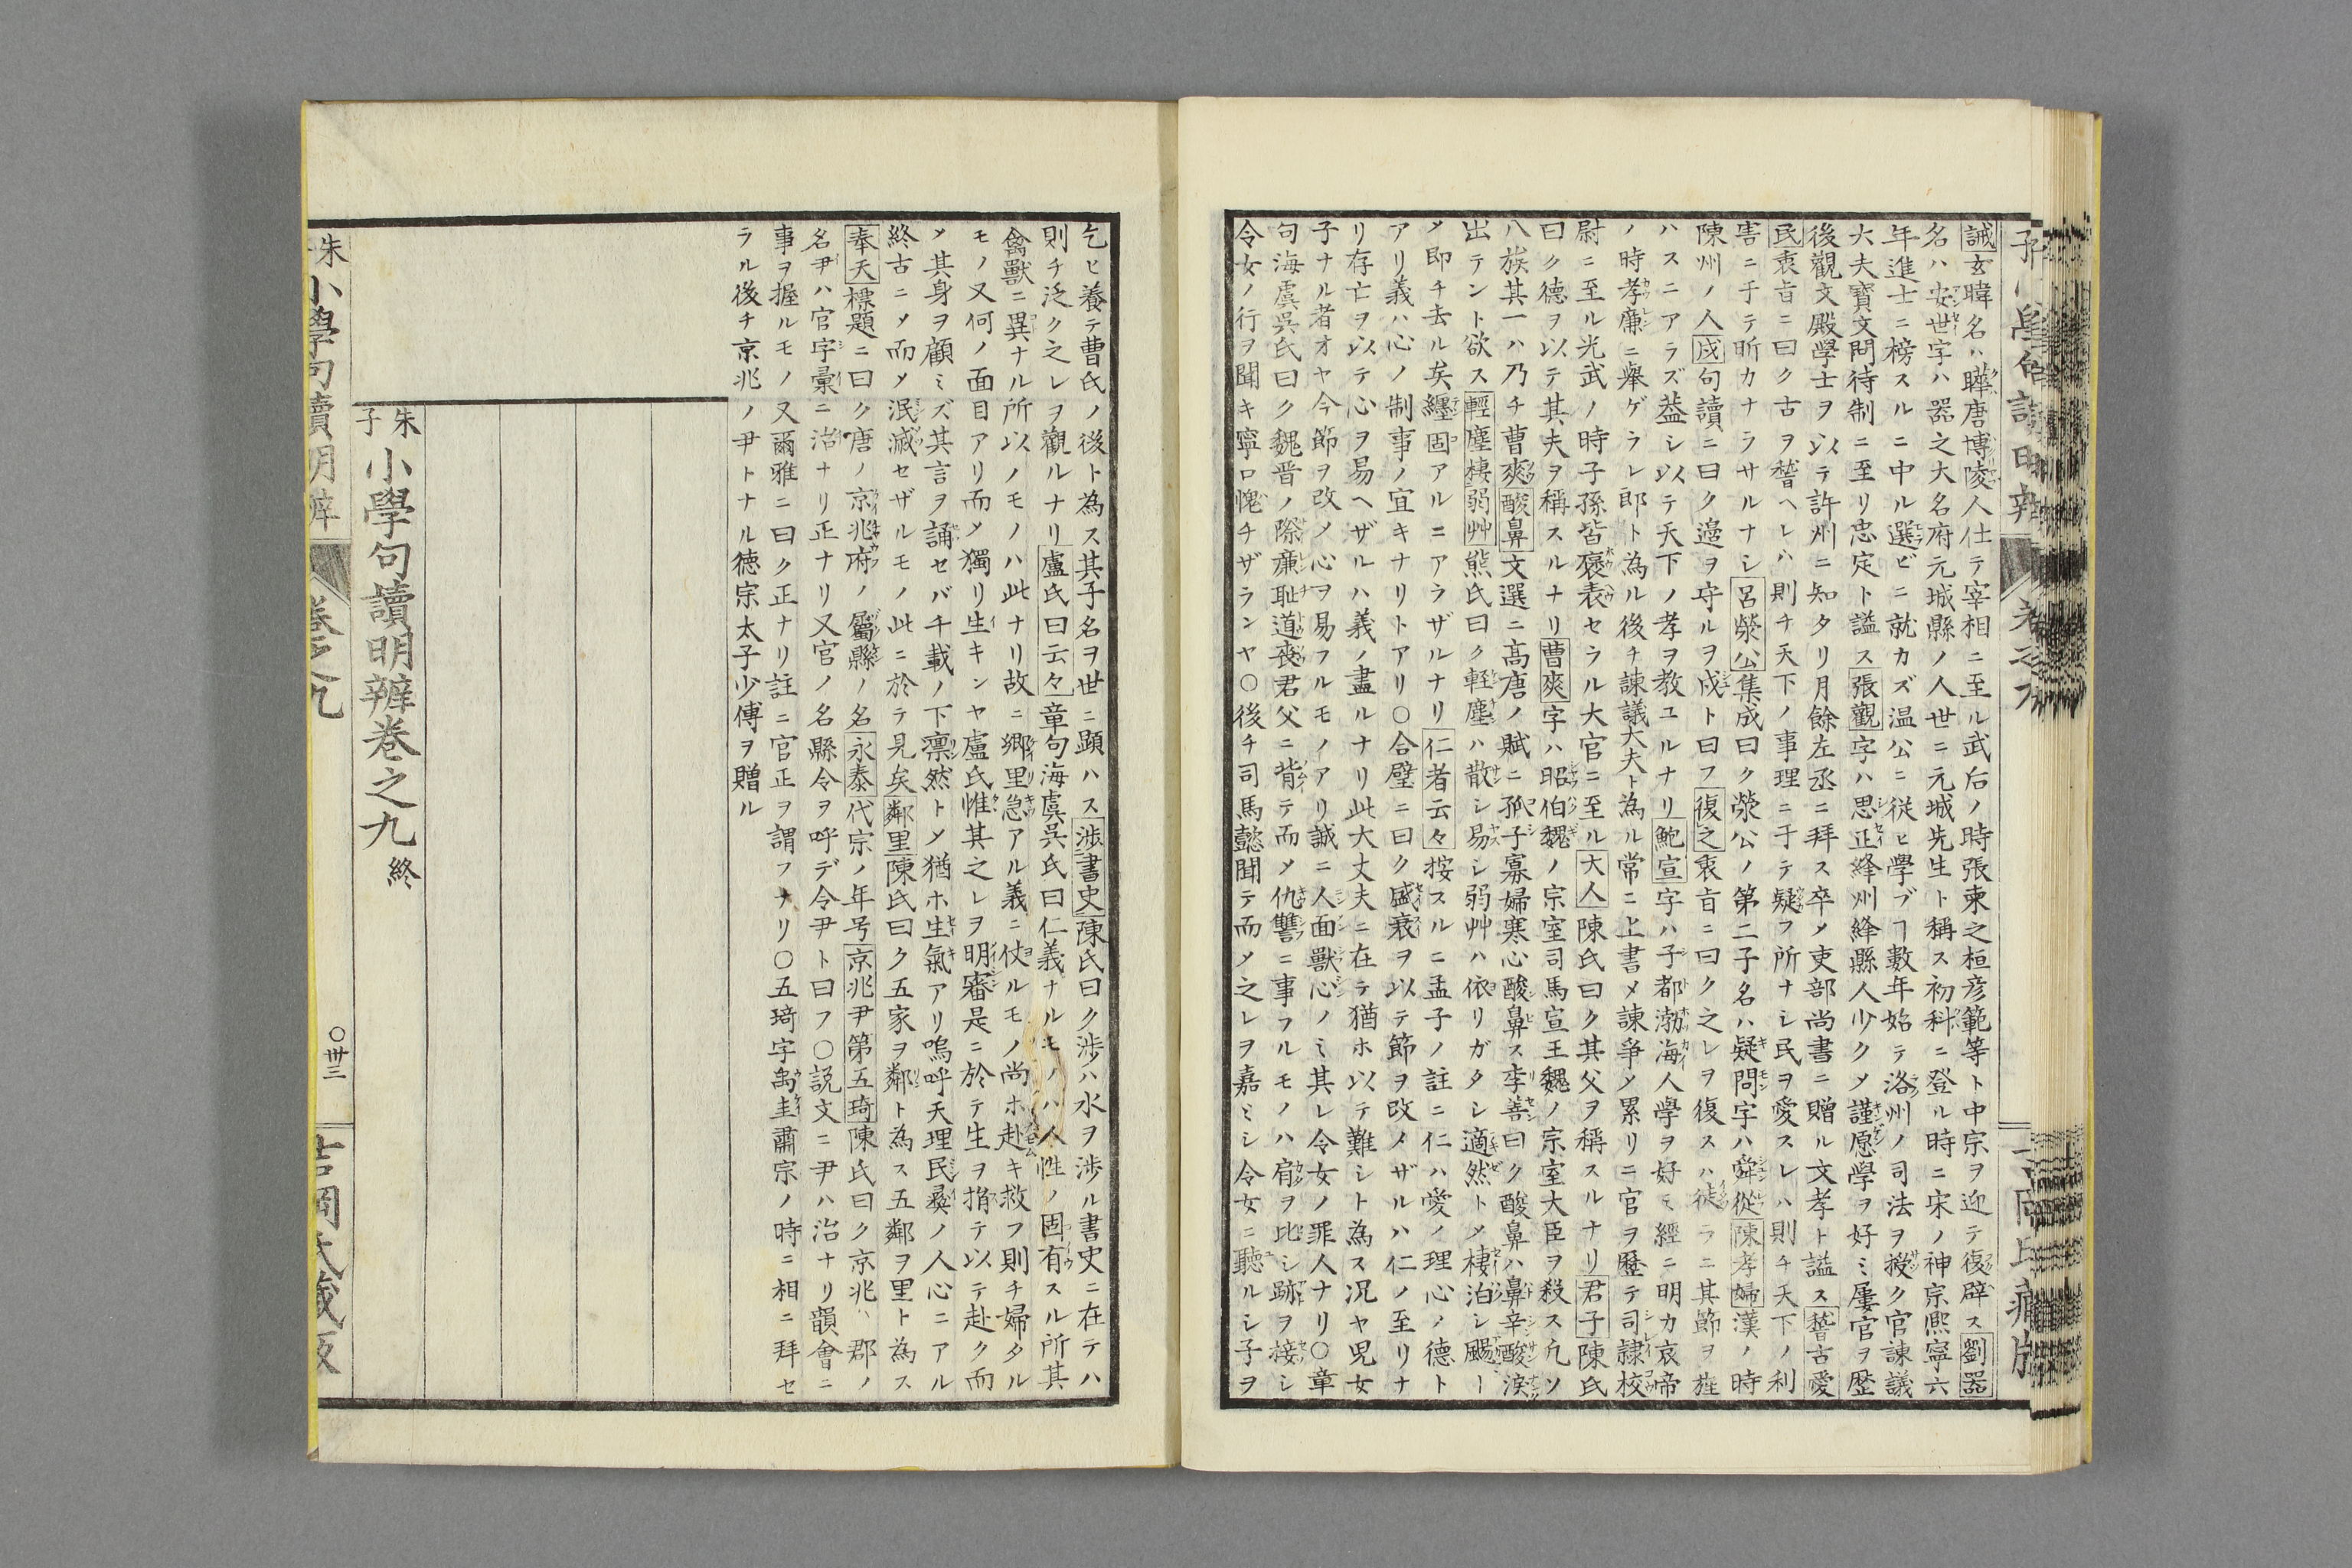 誡玄暐名ハ曄唐博陵人仕テ宰相ニ至ル武后ノ時張柬之桓彦範等ト中宗ヲ迎テ復辟ス劉器
名ハ安世字ハ器之大名府元城縣ノ人世ニ元城先生ト稱ス初科ニ登ル時ニ宋ノ神宗熈寧六
年進士ニ榜スルニ中ル選ビニ就カズ温公ニ従ヒ學ブヿ數年始テ洛州ノ司法ヲ授ク官諫議
大夫寶文閣待制ニ至リ忠定ト謚ス張觀字ハ思正絳州絳縣人少クメ謹愿學ヲ好ミ屢官ヲ歴
後觀文殿學士ヲ以テ許州ニ知タリ月餘左丞ニ拜ス卒メ吏部尚書ニ贈ル文孝ト謚ス稽古愛
民衷旨ニ曰ク古ヲ稽ヘレハ則チ天下ノ事理ニ于テ疑フ所ナシ民ヲ愛スレハ則チ天下ノ利
害ニ于テ昕カナラサルナシ呂滎公集成曰ク滎公ノ第二子名ハ疑問字ハ舜從陳孝婦漢ノ時
陳州ノ人戍句讀ニ曰ク邉ヲ守ルヲ戍ト曰フ復之衷旨ニ曰ク之レヲ復スハ徒ラニ其節ヲ旌
ハスニアラズ葢シ以テ天下ノ孝ヲ教ユルナリ鮑宣字ハ子都渤海人學ヲ好ミ經ニ明カ哀帝
ノ時孝廉ニ舉ゲラレ郎ト為ル後チ諫議大夫ト為ル常ニ上書メ諫爭メ累リニ官ヲ歴テ司隷校
尉ニ至ル光武ノ時子孫皆褒表セラル大官ニ至ル大人陳氏曰ク其父ヲ稱スルナリ君子陳氏
曰ク德ヲ以テ其夫ヲ稱スルナリ曹爽字ハ昭伯魏ノ宗室司馬宣王魏ノ宗室大臣ヲ殺ス凢ソ
八族其一ハ乃チ曹爽酸鼻文選ニ髙唐ノ賦ニ孤子寡婦寒心酸鼻ス李善曰ク酸鼻ハ鼻辛酸淚
出テント欲ス輕塵棲弱艸熊氏曰ク軽塵ハ散シ易シ弱艸ハ依リガタシ適然トメ棲泊シ颺ー
メ即チ去ル矣纏固アルニアラザルナリ仁者云々按スルニ孟子ノ註ニ仁ハ愛ノ理心ノ德ト
アリ義ハ心ノ制事ノ宜キナリトアリ○合璧ニ曰ク盛衰ヲ以テ節ヲ改メザルハ仁ノ至リナ
リ存亡ヲ以テ心ヲ易ヘザルハ義ノ盡ルナリ此大丈夫ニ在テ猶ホ以テ難シト為ス况ヤ児女
子ナル者オヤ今節ヲ改メ心ヲ易フルモノアリ誠ニ人面獸心ノミ其レ令女ノ罪人ナリ○章
句海虞呉氏曰ク魏晋ノ際廉耻道喪君父ニ背テ而メ仇讐ニ事フルモノハ肩ヲ比シ跡ヲ接シ
令女ノ行ヲ聞キ寧ロ愧チザランヤ○後チ司馬懿聞テ而メ之レヲ嘉ミシ令女ニ聽ルシ子ヲ
乞ヒ養テ曹氏ノ後ト為ス其子名ヲ世ニ顕ハス渉書史陳氏曰ク渉ハ水ヲ渉ル書史ニ在テハ
則チ泛ク之レヲ觀ルナリ盧氏曰云々章句海虞呉氏曰仁義ナルモノハ人性ノ固有スル所其
禽獸ニ異ナル所以ノモノハ此ナリ故ニ郷里急アル義ニ仗ルモノ尚ホ赴キ救フ則チ婦タル
モノ又何ノ面目アリ而メ獨リ生キンヤ盧氏惟其之レヲ明審是ニ於テ生ヲ捐テ以テ赴ク而
メ其身ヲ顧ミズ其言ヲ誦セバ千載ノ下凛然トメ猶ホ生氣アリ嗚呼天理民彝ノ人心ニアル
終古ニメ而メ泯滅セザルモノ此ニ於テ見矣鄰里陳氏曰ク五家ヲ鄰ト為ス五鄰ヲ里ト為ス
奉天標題ニ曰ク唐ノ京兆府ノ屬縣ノ名永泰代宗ノ年号京兆尹第五琦陳氏曰ク京兆ハ郡ノ
名尹ハ官字彙ニ治ナリ正ナリ又官ノ名縣令ヲ呼デ令尹ト曰フ○説文ニ尹ハ治ナリ韻會ニ
事ヲ握ルモノ又爾雅ニ曰ク正ナリ註ニ官正ヲ謂フナリ○五琦字禹圭肅宗ノ時ニ相ニ拜セ
ラル後チ京兆ノ尹トナル德宗太子少傅ヲ贈ル
朱子小學句讀明辨卷之九終
朱 小學句讀明辨 卷之九 ○卅三